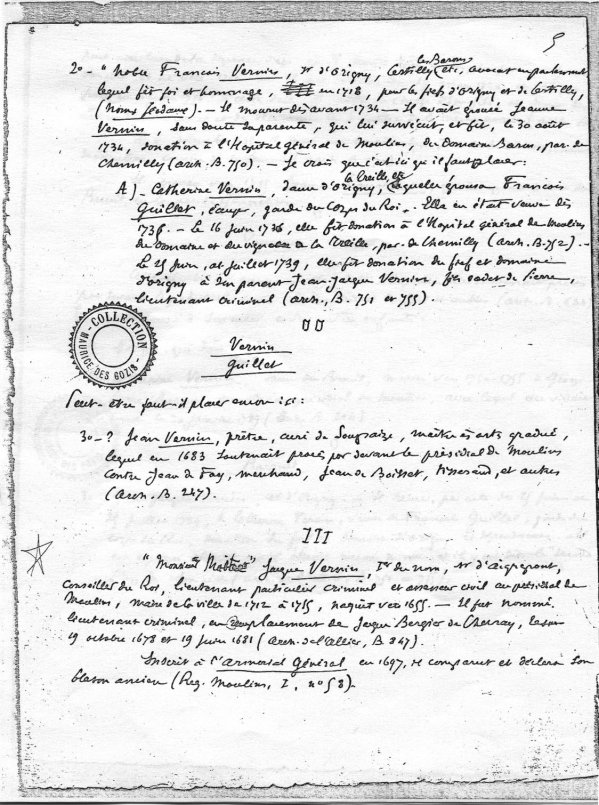 5
les Barons
2º - "Noble François Vernin, Sr d'Origny, Certilly, etc, avocat en parlement
lequel fit foi et hommage, en 1718, pour les fiefs d'Origny et de Certilly,
(Noms féodaux). - Il mourut dès avant 1734 - Il avait épousé Jeanne
Vernin, sans doute sa parente, qui lui survécut, et fit, le 30 août
1734, donation à l'Hopital général de Moulins, du Domaine Baron, par. de
Chemilly (arch. B. 750). - Je crois que c'est ici qu'il faut placer:
la Treille, etc
A) - Catherine Vernin, dame d'Origny, laquelle épousa François
Guillet, Ecuyer, garde du Corps du Roi. Elle en était veuve dès
1736. - Le 16 Juin 1736, elle fit donation à l'Hopital général de Moulins
du Domaine et du vignoble de la Treille, par. de Chemilly (Arch. B. 752). -
Le 25 Juin, et Juillet 1739, elle fit donation du fief et domaine
d'Origny à son parent Jean-Jacques Vernin, fils cadet de Pierre,
lieutenant criminel (arch. B. 751 et 755).
COLLECTION MAURICE DES GOZIS
Vernin
Guillet
Peut-etre faut-il placer encore ici:
3º - ? Jean Vernin, prêtre, curé de Souvigny, maître ès arts gradué,
lequel en 1683 soutenait procès par devant le présidial de Moulins
contre Jean de Fay, marchand, Jean de Boisset, tisserand, et autres
(Arch. B. 247).
III
"Monsieur" Jacques Vernin, Ier du nom, Sr d'Aigrepont,
Conseiller du Roi, lieutenant particulier criminel et assesseur civil au présidial de
Moulins, maire de la ville de 1712 à 1715, naquit vers 1655. - Il fut nommé
lieutenant criminel, en remplacement de Jacques Bergier de, les
19 octobre 1678 et 19 juin 1681 (Arch. de l'Allier, B 247).
Inscrit à l'Armorial Général en 1697, il comparut et déclara son
blason ancien (Reg. Moulins, I, nº 58).